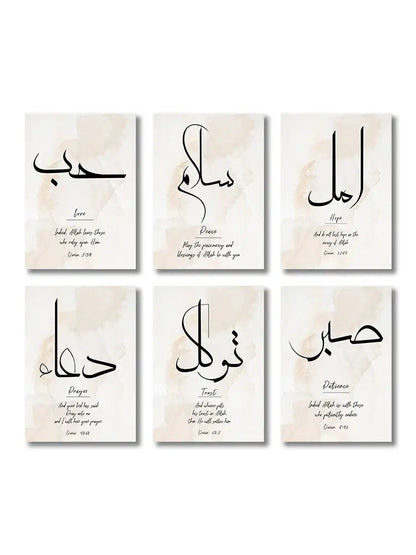 حب
Love
Indeed, Allah loves those
who rely upon Him
Quran 3:159
سلام
Peace
May the peacemercy and
blessings of Allah be with you
امل
Hope
And do not lost hope in the
mercy of Allah
Quran
دعاء
Prayer
And your lord has said
Pray unto me
and I will hear your prayer
Quran
توكل
Trust
And whoever puts
his trust in Allah,
then He will suffice him
Quran 65:3
صبر
Patience
Indeed Allah is with those
who patiently endure
Quran